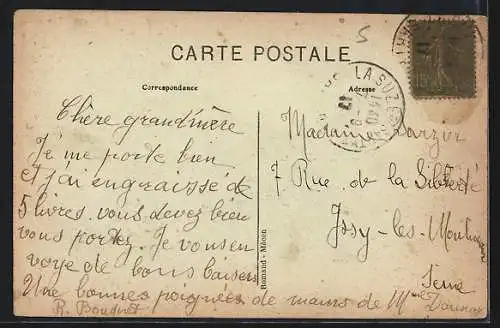 5
CARTE POSTALE
Correspondance
Adresse
LA SUZE
15c
Chère grand'mère
Je me porte bien
et j'ai engraissé de
5 livres. vous devez bien
vous porter. Je vous en
voye de bons baisers
Une bonnes poignées de mains de Mme
R. Bouquet
Madame
7 Rue de la Liberté
Issy-les-Moulineaux
Seine
Romand - Mticen